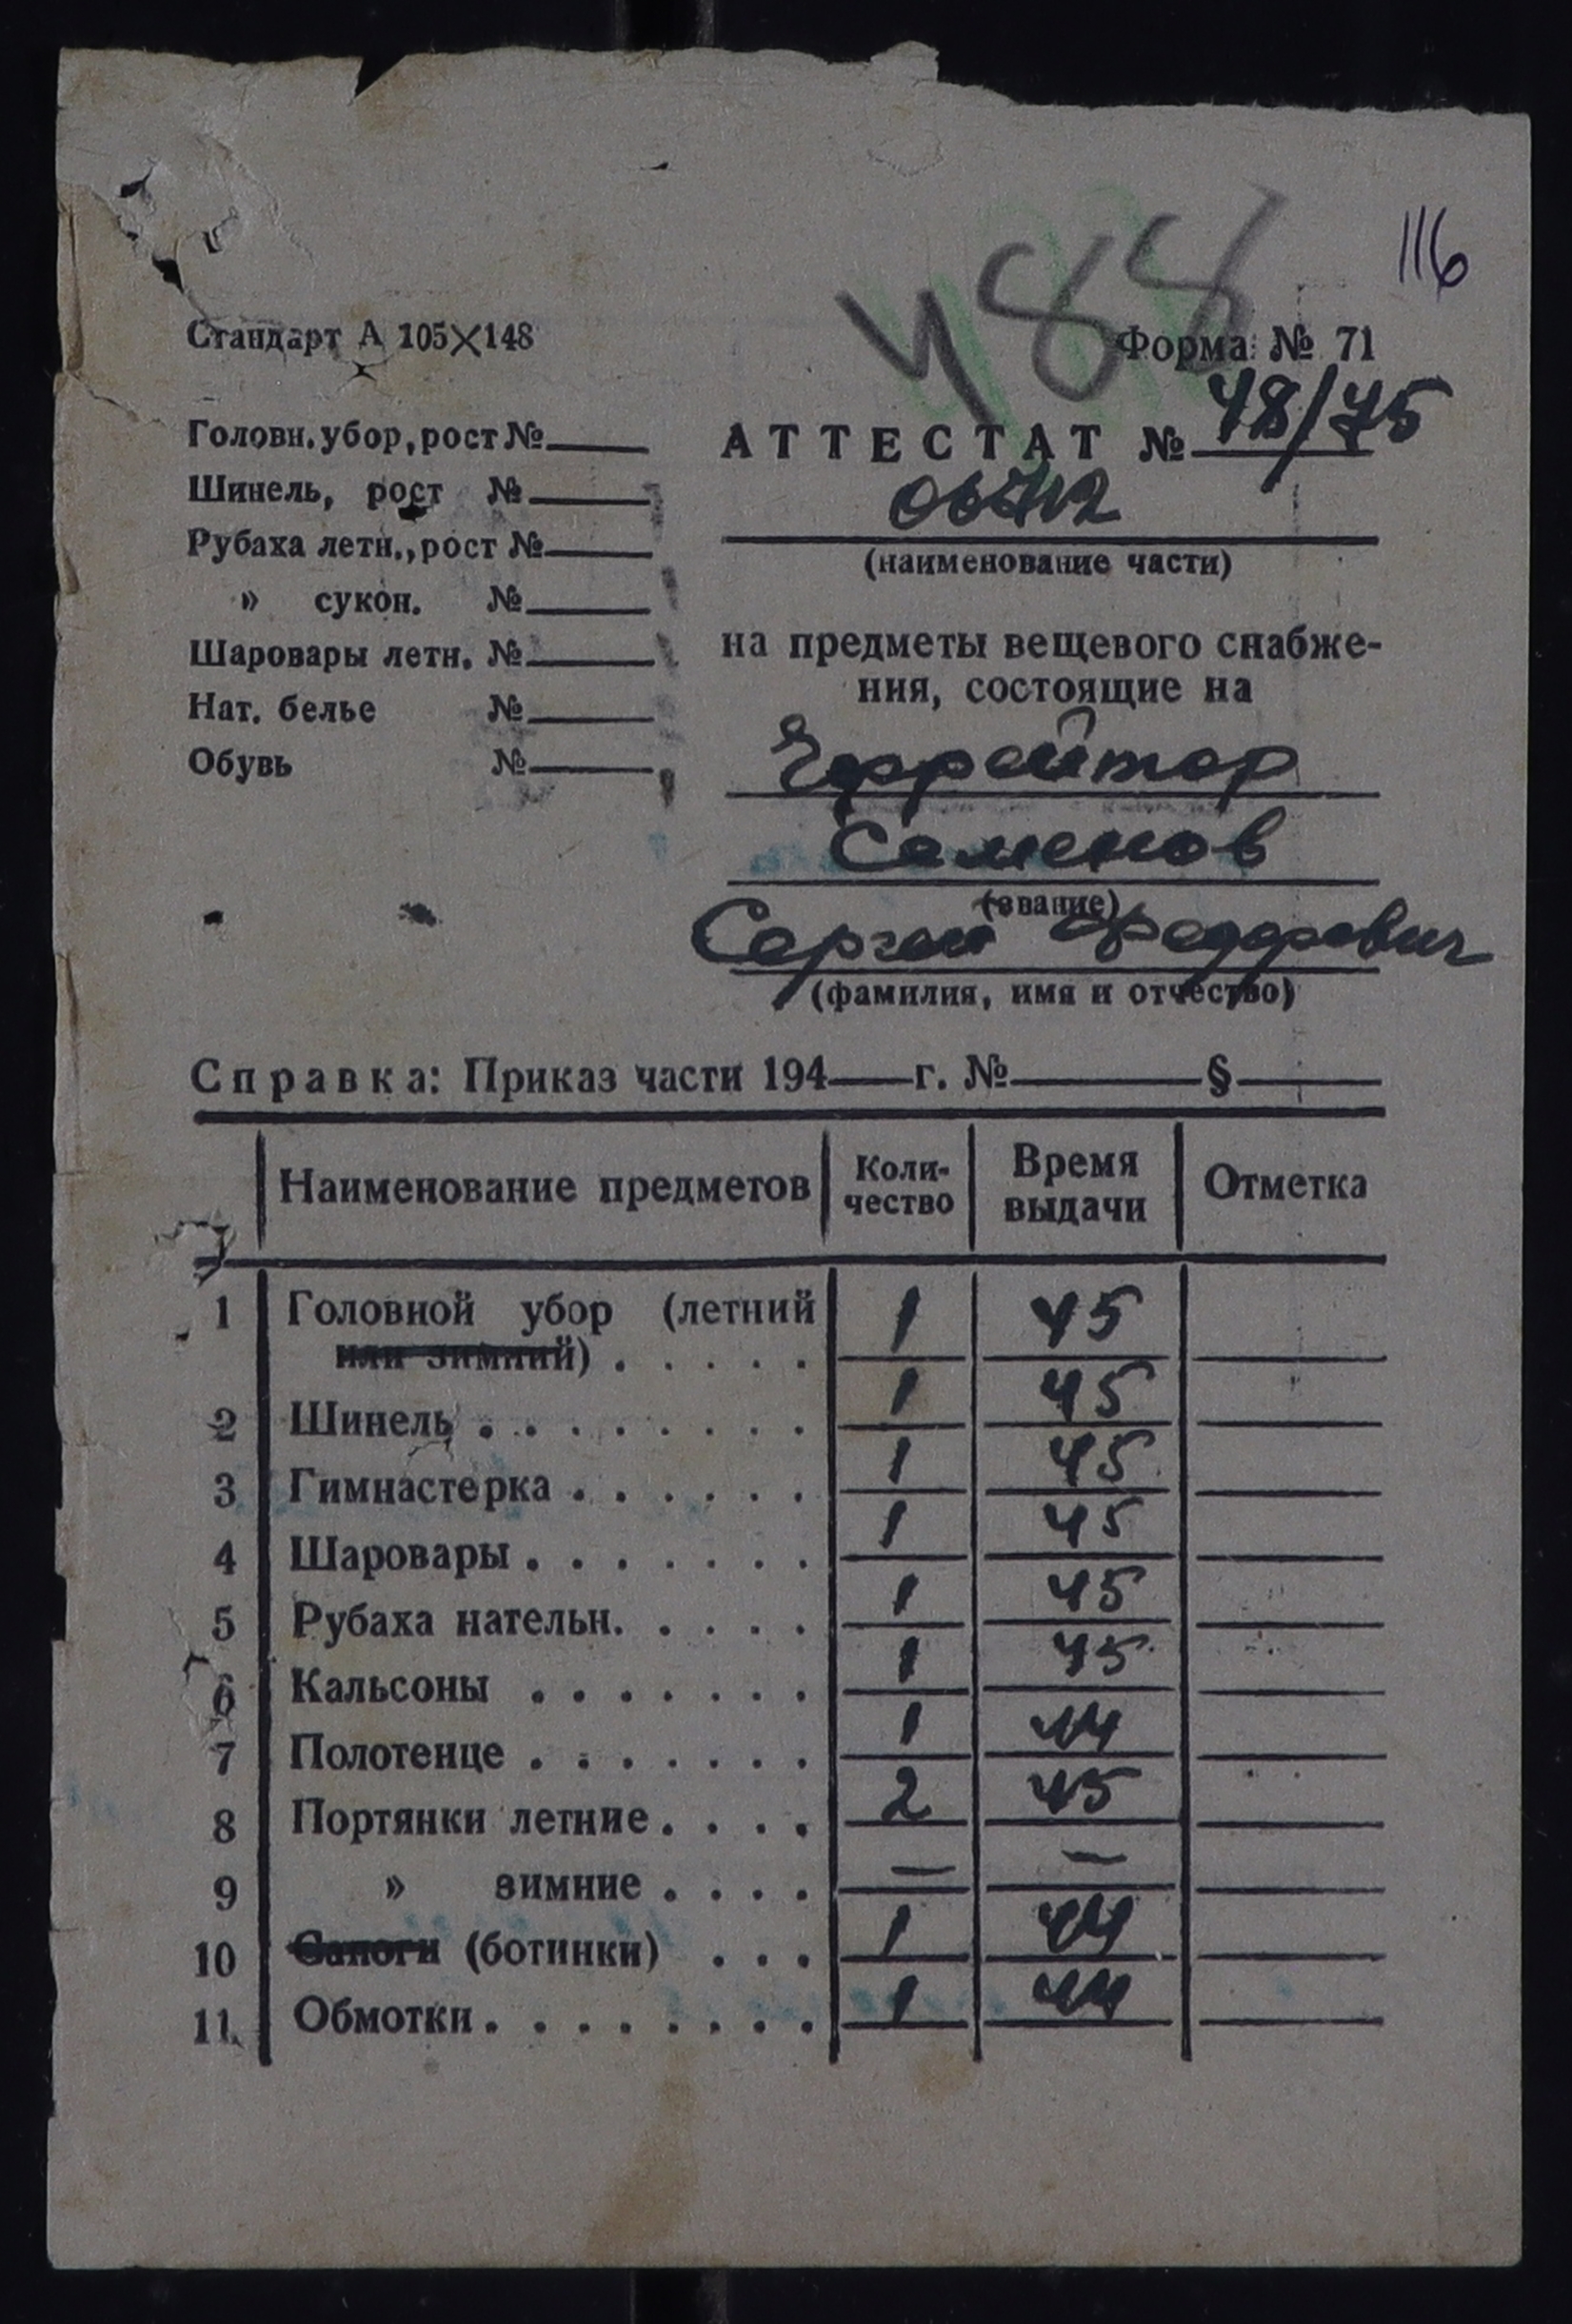 116
488
Стандарт А 105×148
Форма № 71
Головн. убор, рост №
Шинель, рост №
Рубаха летн., рост №
» сукон. №
Шаровары летн. №
Нат. белье №
Обувь №
АТТЕСТАТ № 48/75
(наименование части)
на предметы вещевого снабже-
ния, состоящие на
Ефрейтор
Семенов
(звание)
Сергей Федорович
(фамилия, имя и отчество)
Справка: Приказ части 194 г. № §
Наименование предметов Коли-чество Время выдачи Отметка
1 Головной убор (летний
или зимний) . . . . . 1 45
2 Шинель . . . . . . . . 1 45
3 Гимнастерка . . . . . . 1 45
4 Шаровары . . . . . . . 1 45
5 Рубаха нательн. . . . . 1 45
6 Кальсоны . . . . . . . 1 45
7 Полотенце . . . . . . . 1 44
8 Портянки летние . . . . 2 45
9 » зимние . . . . — —
10 Сапоги (ботинки) . . . 1 44
11 Обмотки . . . . . . . . 1 44